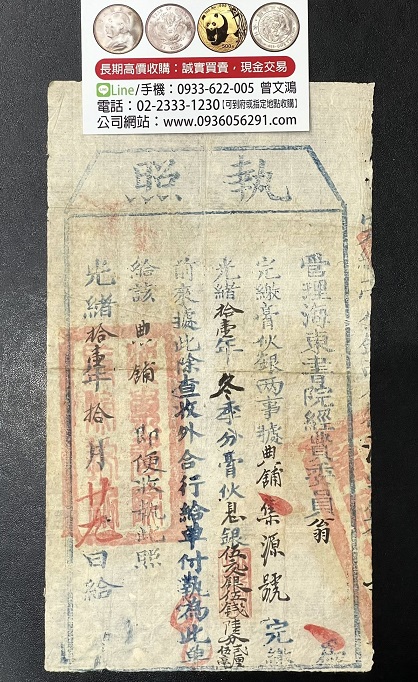 長期高價收購：誠實買賣，現金交易
Line/手機：0933-622-005 曾文鴻
電話：02-2333-1230【可到府或指定地點收購】
公司網站：www.0936056291.com
執照
管理海東書院經費委員翁
完繳膏伙銀两事據典鋪集源號完繳
光緒拾壹年冬季分膏伙息銀伍元銀伍錢陸分
前來據此除查收外合行給單付執為此単
給該典鋪即便收執此照
光緒拾壹年拾月廿九日給